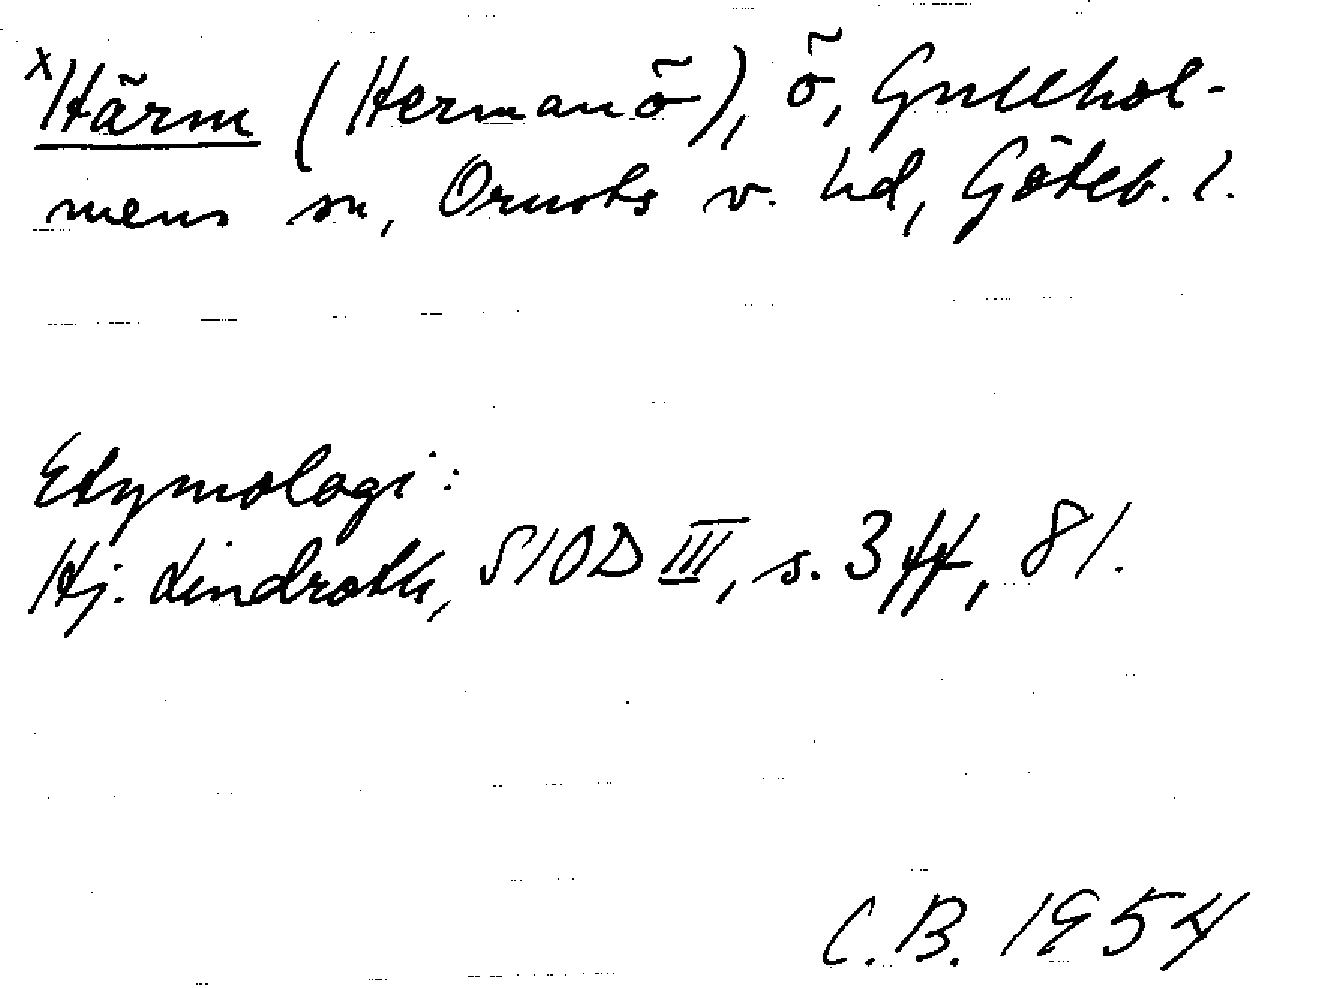 x Härm (Hermanö), ö, Gullhol-
mens sn, Orusts v. hd, Göteb. l.
Etymologi:
Hj. Lindroth, SIOD III, s. 3 ff, 81.
C.B. 1954